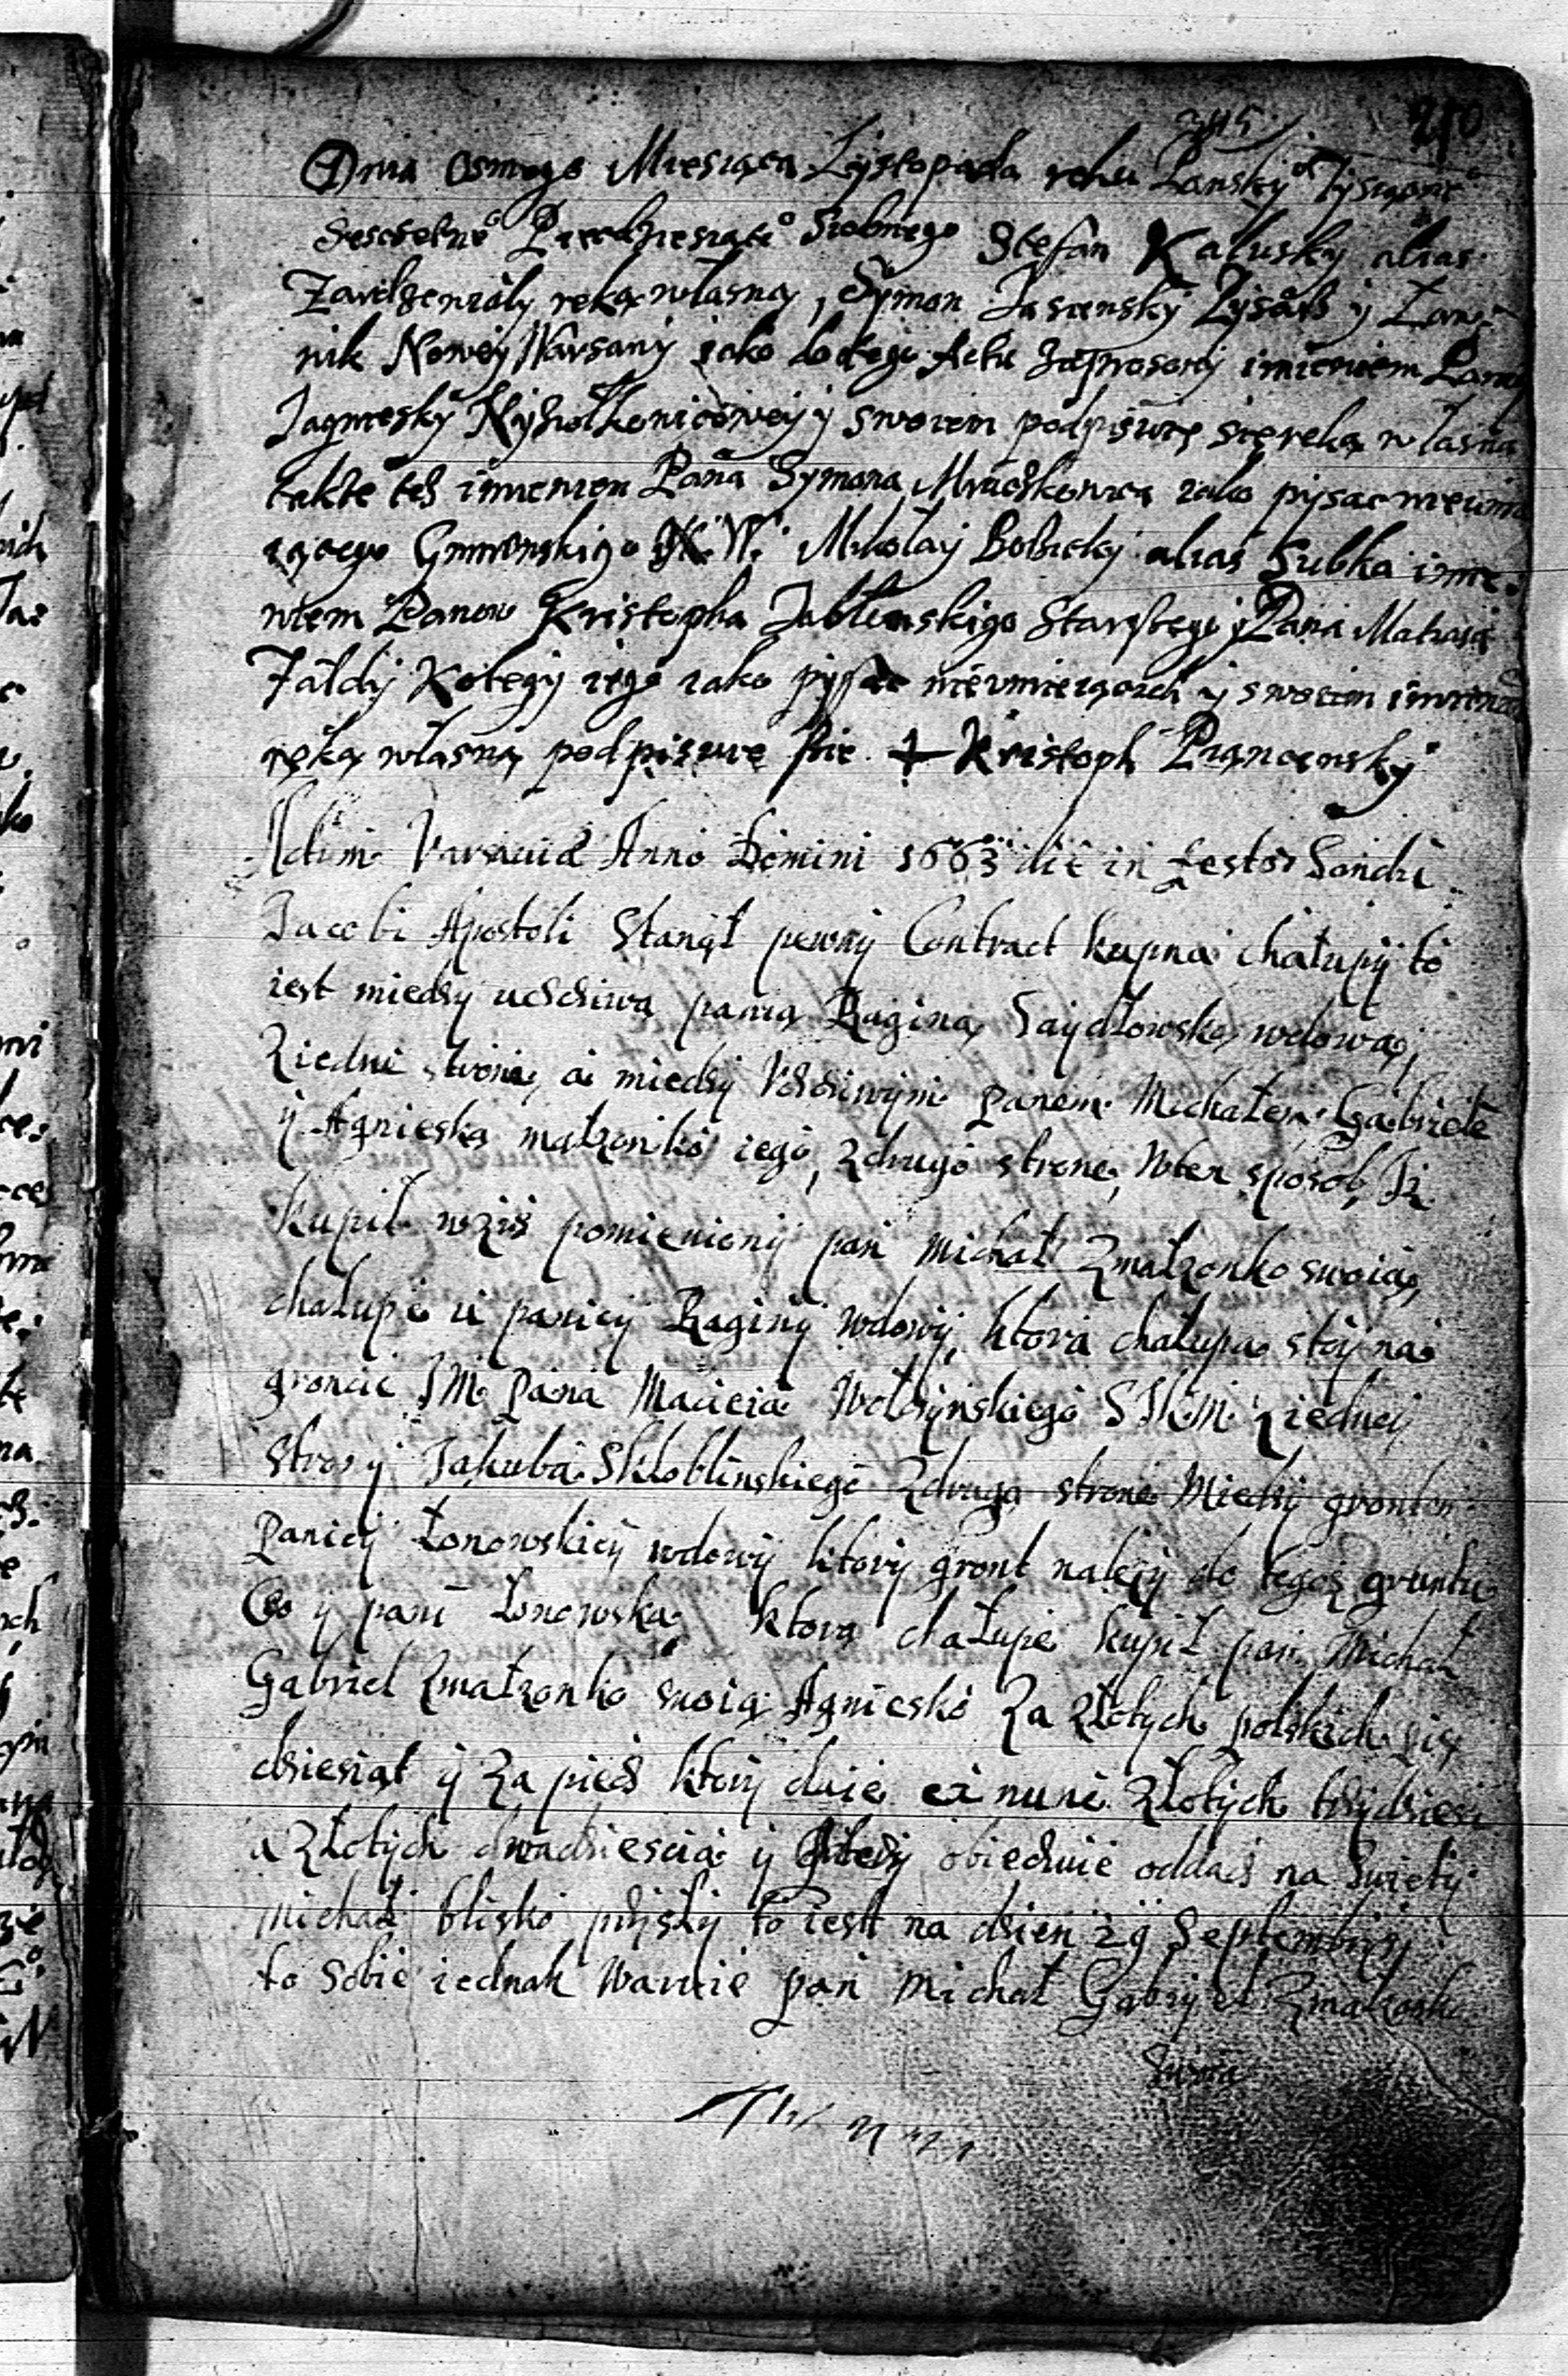 345 210
Dnia osmego Miesiąca Lystopada roku Pansky° Tysiącne°
Sescsetne° Piecdziesiąte° Siodmego Stefan Kałusky alias
ręką własną, Symon Jasienský y Ław-
nik Nowey Warsawy iako do tego Aktu zaprosony imieniem Panny
y swoiem podpisuię się ręką własną
takze tes imieniem Pana Symona iako pysac nieumie
iącego Mikołay Bobicky alias Subka imie-
niem Panow Kristopha Jabłonskigo Starsego y Pana Matiasa
Fałdy Kolegy iego iako pysac nieumieiących y swoim imieniem
ręką własną podpisuie sie + Kristoph
Actum Varsaviæ Anno Domini 1663 die in festo Sancti
Jacobi Apostoli Stanął pewny Contract kupna chałupy to
iest miedsy ucsciwą panią Raginą Saydłowską wdową,
Ziedne strone, a miedsy Vcsciwym panem Michałem Gabriele
y Agnieską małzonką iego, zdrugo strone, Wten sposob, Iz
kupił wzis pomieniony pan michał Zmałzonko swoią,
chałupe u paniey Raginy wdowy, ktora chałupa stoy na
groncie IM Pana Macieia Wolsynskiego S I K M ziedney
strony Jakuba Skłoblinskiego Zdrugą strone Miedsy grontem
paniey Łonowskiey wdowy ktory gront nalezy do tegoz gruntu
Co y pani Łonowska, ktorą chałupe kupił pan Michał
Gabriel Zmałzonko swoią Agniesko Za złotych polskich pię
dsiesiąt y Za pięc ktory daie ex nunc złotych trzydsiesci
a złotych dwadsiescia y obiecuie oddac na Swięty
michał blisko przysły to iest na dsien 29 Septembrys
to sobie iednak Waruie pan Michał Gabryel Zmałzonko
Swoią